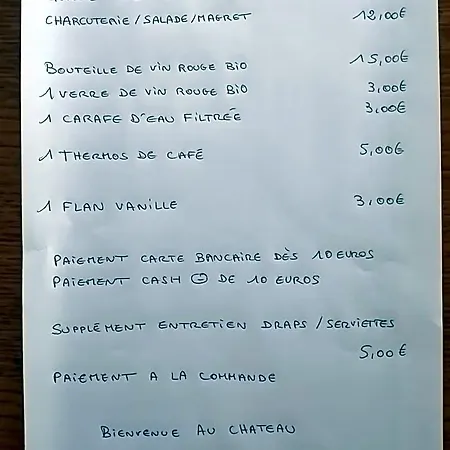 CHARCUTERIE/SALADE/MAGRET 12,00€
BOUTEILLE DE VIN ROUGE BIO 15,00€
1 VERRE DE VIN ROUGE BIO 3,00€
1 CARAFE D'EAU FILTRÉE 3,00€
1 THERMOS DE CAFÉ 5,00€
1 FLAN VANILLE 3,00€
PAIEMENT CARTE BANCAIRE DÈS 10 EUROS
PAIEMENT CASH DE 10 EUROS
SUPPLÉMENT ENTRETIEN DRAPS/SERVIETTES
5,00€
PAIEMENT A LA COMMANDE
BIENVENUE AU CHATEAU